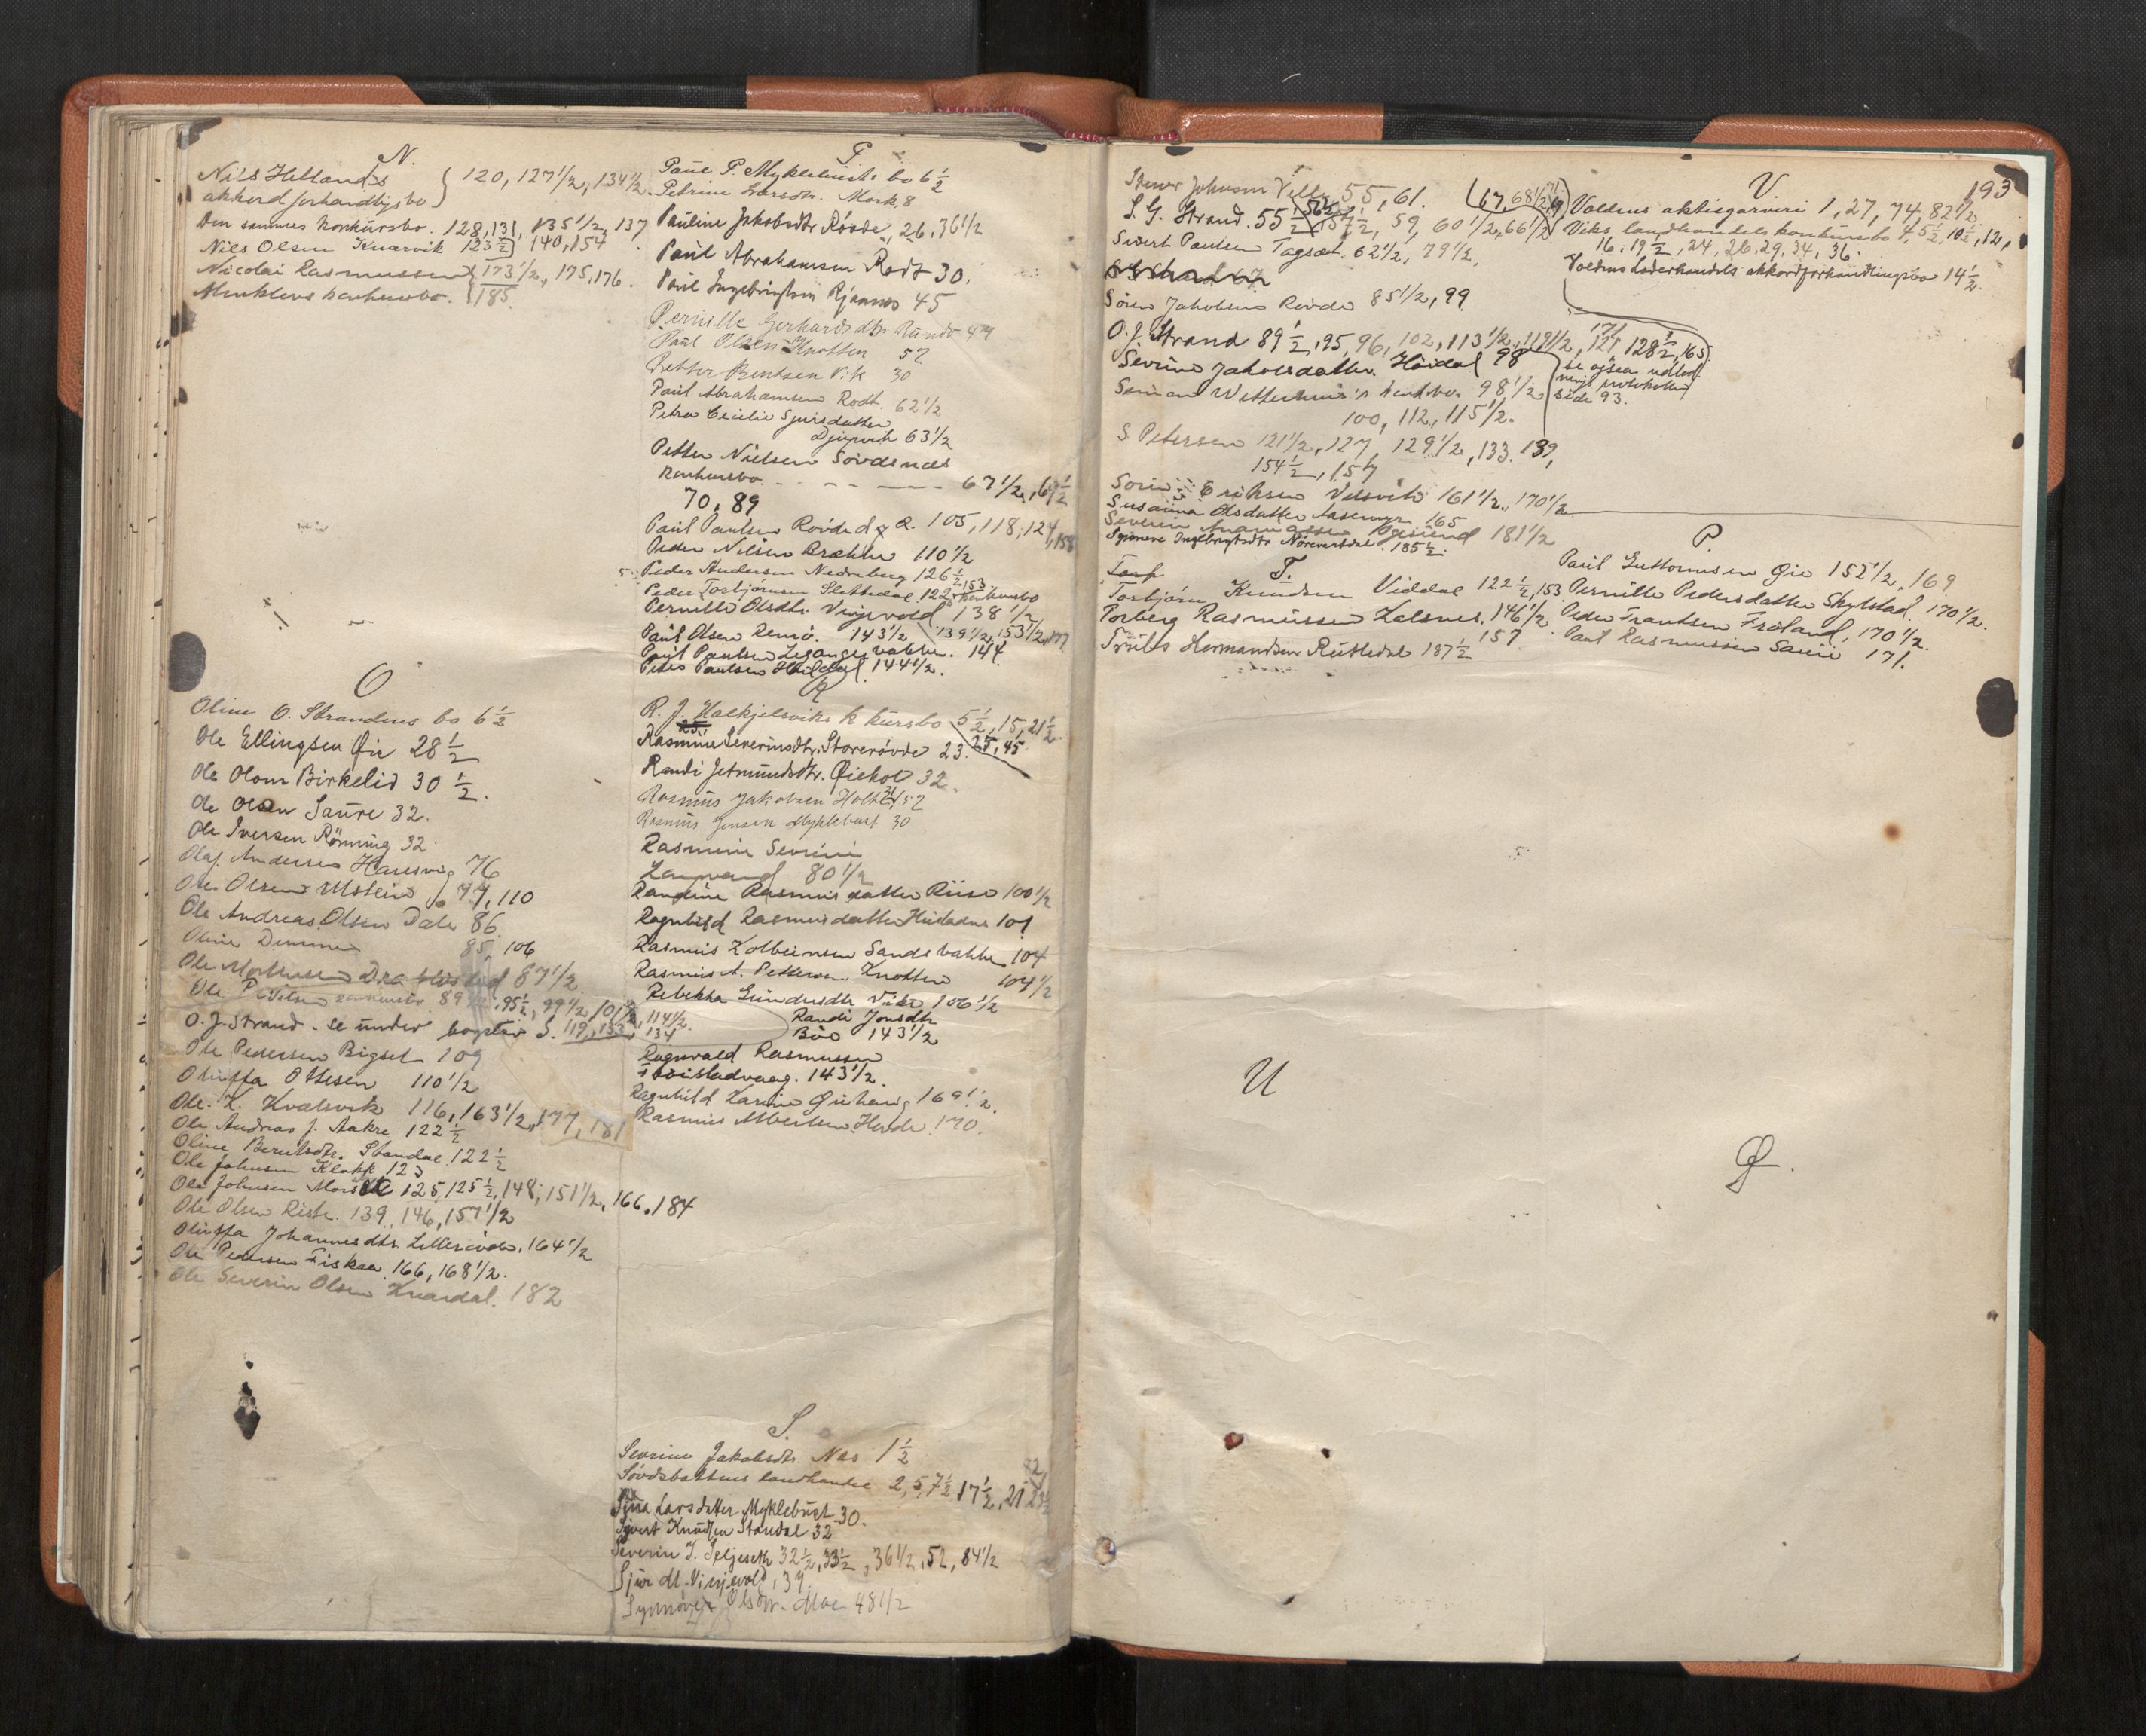 N.
Nils Hellands } 120, 127 1/2, 134 1/2.
akkordforhandlgsbo
Den sammes konkursbo. 128, 131, 135 1/2, 137
Nils Olsen Knarvik 123 1/2 140, 154
Nicolai Rasmussen 173 1/2, 175, 176.
konkursbo. 185.
O
Oline O. Strandnes bo 6 1/2
Ole Ellingsen Øie 28 1/2
Ole Olsen Birkelid 30 1/2.
Ole Olsen Saure 32.
Ole Iversen Rönning 32.
Olaf Andersen Haresvig 76
Ole Olsen Ulstein 77, 110
Ole Andreas Olsen Dale 86
Oline 85, 106
Ole 87 1/2
Ole konkursbo 89 1/2, 95 1/2, 99 1/2, 101 1/2, 114 1/2.
O. J. Strand - se under bogstav S. 119, 133, 134
Ole Pedersen Bigset 109
Oluffa Ottesen 110 1/2
Ole K. Kvalsvik 116, 163 1/2, 177, 181
Ole Andreas J. Aakre 122 1/2
Oline Berntsdtr. Standal 122 1/2
Ole Johnsen Klokk 123
Ole Johnsen 125, 125 1/2, 148, 151 1/2, 166, 184
Ole Olsen Riste. 139, 146, 157 1/2
Oluffa Johannesdtr. Litlerövde, 164 1/2
Ole Pedersen Fiskaa 166, 168 1/2.
Ole Severin Olsen 182
P
Paul P. Myklebusts bo 6 1/2
Petrine Larsdtr. Mork 8
Pauline Jakobsdtr Røvde, 26, 36 1/2
Paul Abrahamsen Rødt 30.
Paul Ingebrigtsen 45
Pernille Gerhardsdtr. Runde 47
Paul Olsen Knotten 52
Petter Bentsen Vik 30
Paul Abrahamsen Rødt. 62 1/2
Petra Cecilie Sjursdatter
Djupvik 63 1/2
Petter Nielsen Sövdsnæs
konkursbo - - - 67 1/2, 69 1/2
70, 89
Paul Paulsen Røvde d. y. 105, 118, 124, 158
Peder Nilsen Brække 110 1/2
Peder Andersen Nedreberg 126 1/2
Peder Torbjörnsen Slettedal 122, 153 konkursbo
Pernille Olsdtr. Vinjevold 138 1/2
Paul Olsen Remö. 143 1/2 139 1/2, 153 1/2, 177
Paul Paulsen Leganger 144
Peder Paulsen 144 1/2.
R
R. J. Halkjelsviks k kursbo 5 1/2, 15, 21 1/2
Rasmine Severinsdtr. Storerövde 23. 25, 45
Randi Jetmundsdtr. Øiehol 32.
Rasmus Jakobsen 31, 52
Rasmus Jensen Myklebust 30
Rasmine Severine
80 1/2
Randine Rasmusdatter Riise 100 1/2
Ragnhild Rasmusdatter 101
Rasmus Kolbeinsen Sandsbakke 104
Rasmus A. Pettersen Knotten 104 1/2
Rebekka Gundersdtr Vike 106 1/2
Randi Jonsdtr
Böe 143 1/2
Ragnvald Rasmussen
143 1/2.
Ragnhild Karine 169 1/2.
Rasmus Albertsen Hovde 170.
S.
Severine Jakobsdtr. Nes 1 1/2
Sövdsbotnens landhandel 2, 5, 7 1/2 17 1/2, 21
Larsdatter Myklebust 30.
Sivert Knudsen Standal 32
Severin J. Seljeseth 32 1/2, 33 1/2, 36 1/2, 52, 84 1/2
Sjur M. Vinjevold, 39
Synnöve Olsdtr. Moe 48 1/2
193
Johnsen 55, 61.
S. G. Strand. 55 1/2, 56 1/2, 57 1/2, 59, 60 1/2, 66 1/2, 67, 68 1/2
Sivert Paulsen 62 1/2, 79 1/2,
Sören Jakobsens Røvde 85 1/2, 99
O. J. Strand 89 1/2, 95, 96, 102, 113 1/2, 119 1/2, 121, 128 1/2, 165
Severine Jakobsdatter Höidal 98
98 1/2
100, 112, 115 1/2.
se ogsaa
protokollen
side 93.
S Petersen 121 1/2, 127, 129 1/2, 133. 139,
154 1/2, 157
Eriksen 161 1/2, 170 1/2
Susanna Olsdatter Aasemyr 165
Severin 181 1/2
Ingebrigtsdtr 185 1/2.
T.
Torbjörn Knudsen Viddal 122 1/2, 153
Torberg Rasmussen Kalsnes. 146 1/2
157
Truls Hermandsen 187 1/2
V
Voldens aktiegarveri 1, 27, 74, 82 1/2
Viks landhandels konkursbo 4, 5 1/2, 10 1/2, 12,
16, 19 1/2, 24, 26, 29, 34, 36.
Voldens Læderhandels akkordforhandlingsbo 14 1/2
P.
Paul Guttormsen Øie 152 1/2, 169
Pernille Pedersdatter Skylstad. 170 1/2.
Peder Frantsen Fröland, 170 1/2.
Paul Rasmussen Saure 171.
U
Ø.